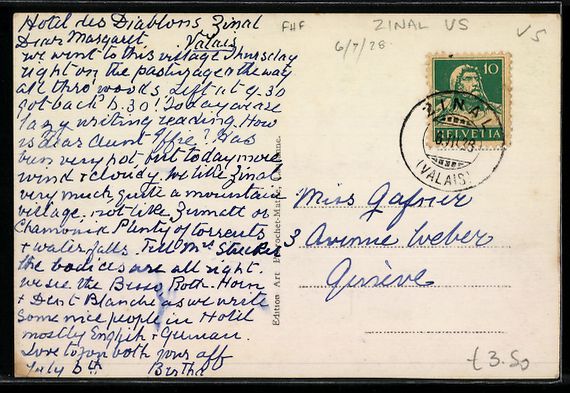 Hotel des Diablons Zinal
Dear Margaret, Valais
we went to this village Thursday
right on the pasturages the way
all thro' woods. Left at 9.30
got back 5.30! Today we are
lazy writing reading. How
is dear Aunt Effie? Has
been very hot, but today more
wind & cloudy. We like Zinal
very much, quite a mountain
village, not like Zermatt or
Chamonix. Plenty of torrents
& waterfalls. Tell Mrs
the bodices are all right.
we see the Besso Roth-Horn
& Dent Blanche as we write
Some nice people in Hotel
mostly English & German.
Love to you both your aff
July 6th Bertha
FHF
6/7/28
ZINAL VS
VS
10
HELVETIA
ZINAL
(VALAIS)
Edition Art
Miss Gafner
3 Avenue Weber
Genève
£3.50